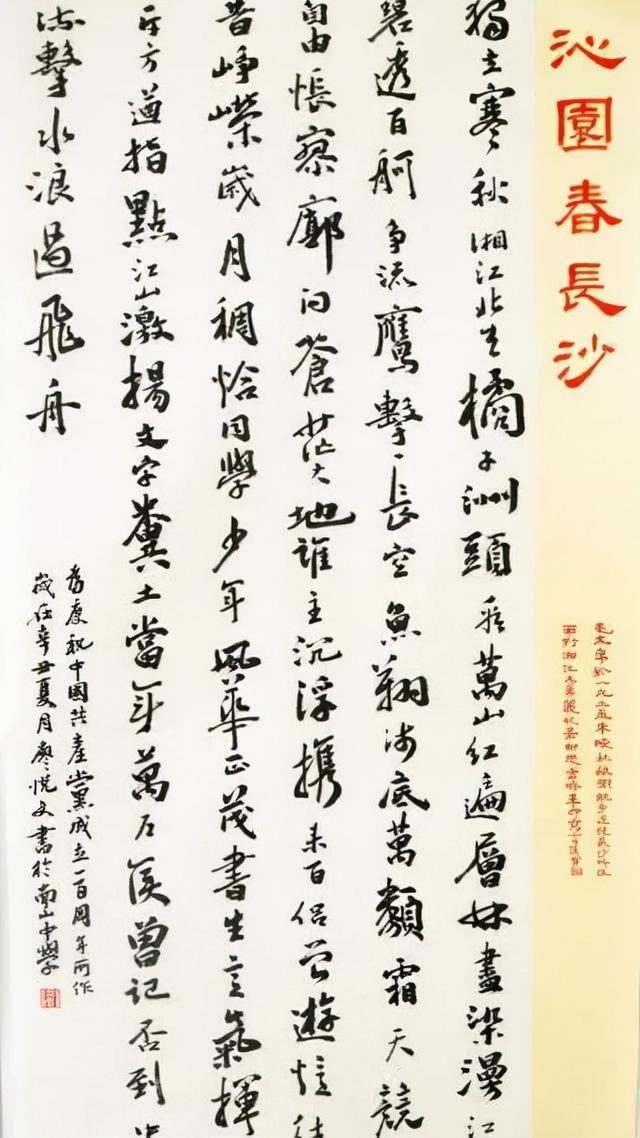 沁園春長沙
獨立寒秋湘江北去橘子洲頭看萬山红遍層林盡染漫江
碧透百舸争流鷹擊長空魚翔浅底萬類霜天競
自由悵寥廓问蒼茫大地誰主沉浮携来百侣曾遊憶往
昔崢嶸歲月稠恰同學少年風華正茂書生意氣揮
斥方遒指點江山激揚文字糞土當年萬户侯曾記否到中
流擊水浪遏飛舟
為慶祝中國共產黨成立一百周年所作
歲在辛丑夏月廖悦文書於南山中學